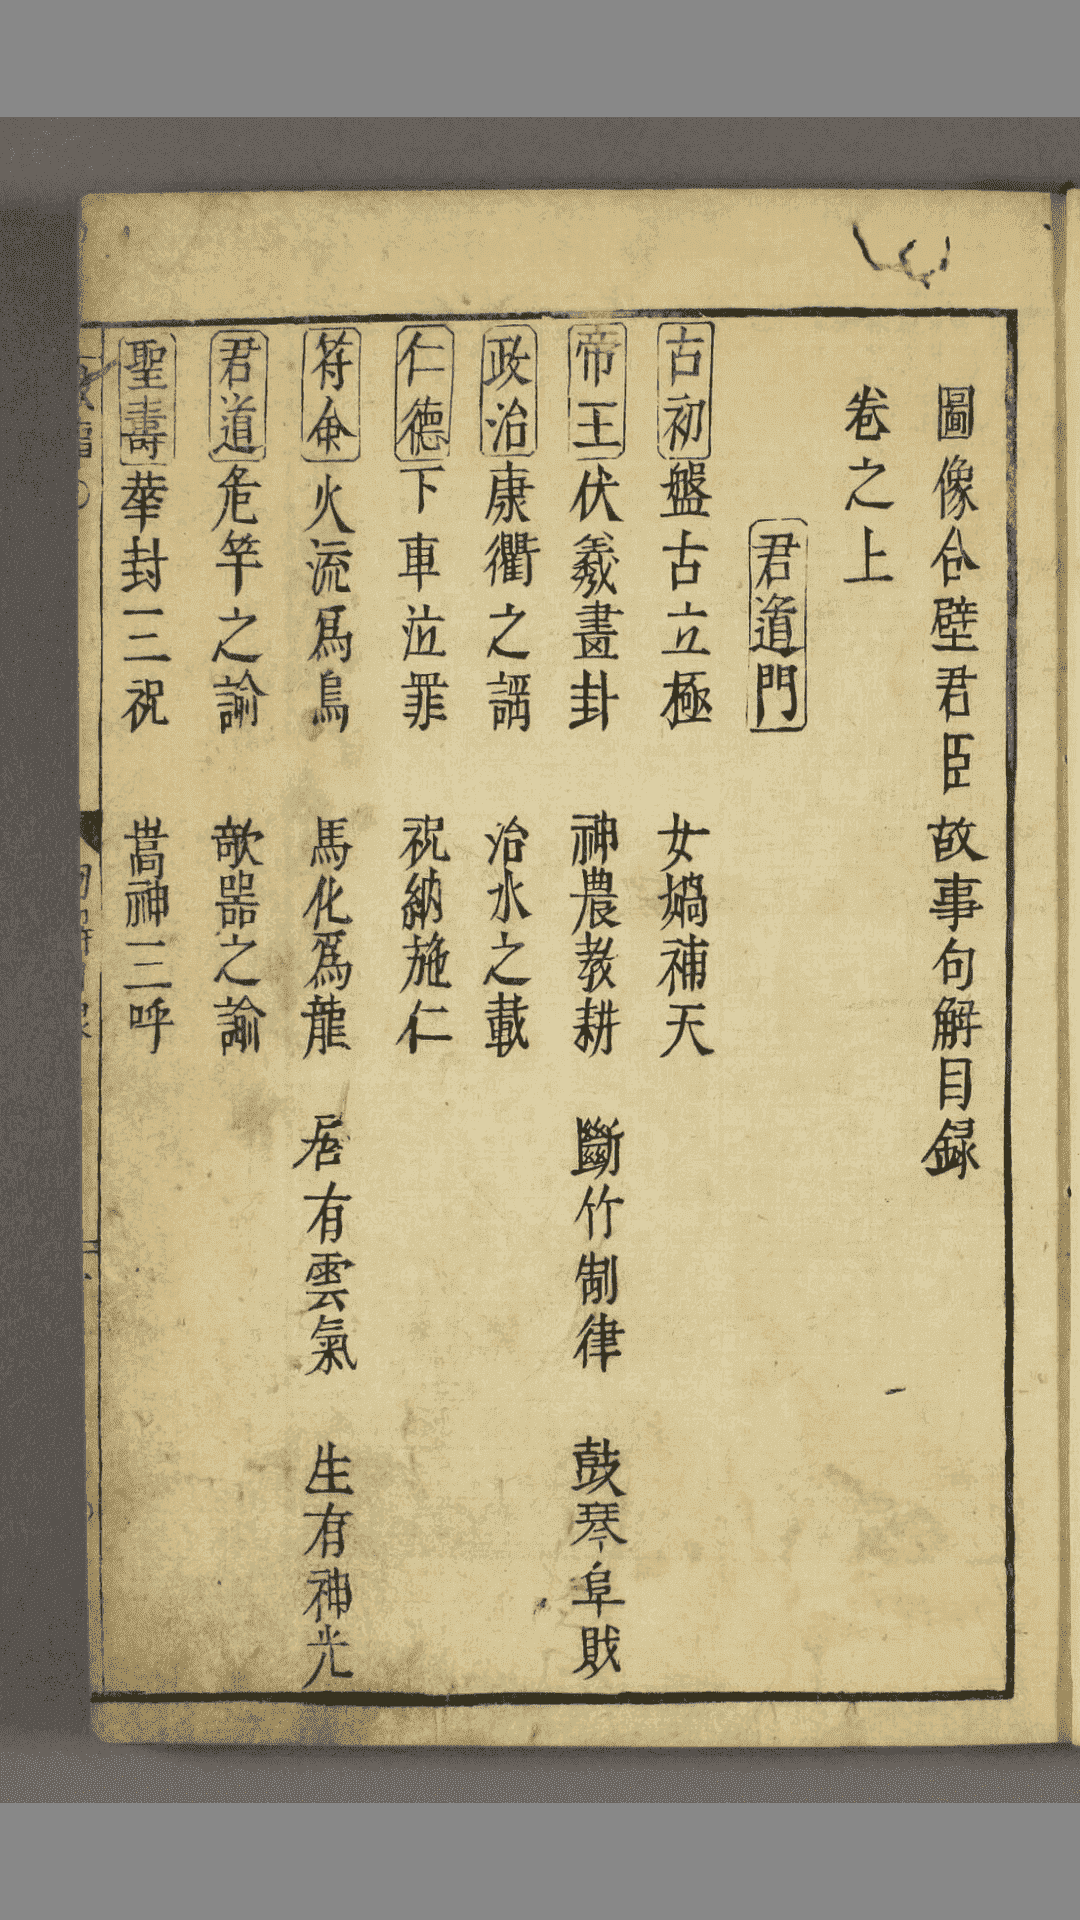 圖像合璧君臣故事句解目録
卷之上
君道門
古初 盤古立極 女媧補天
帝王 伏羲畫卦 神農教耕 斷竹制律 鼓琴阜財
政治 康衢之謡 治水之載
仁德 下車泣罪 祝網施仁
符命 火流爲烏 馬化爲龍 居有雲氣 生有神光
君道 危竿之諭 欹器之諭
聖壽 華封三祝 嵩神三呼